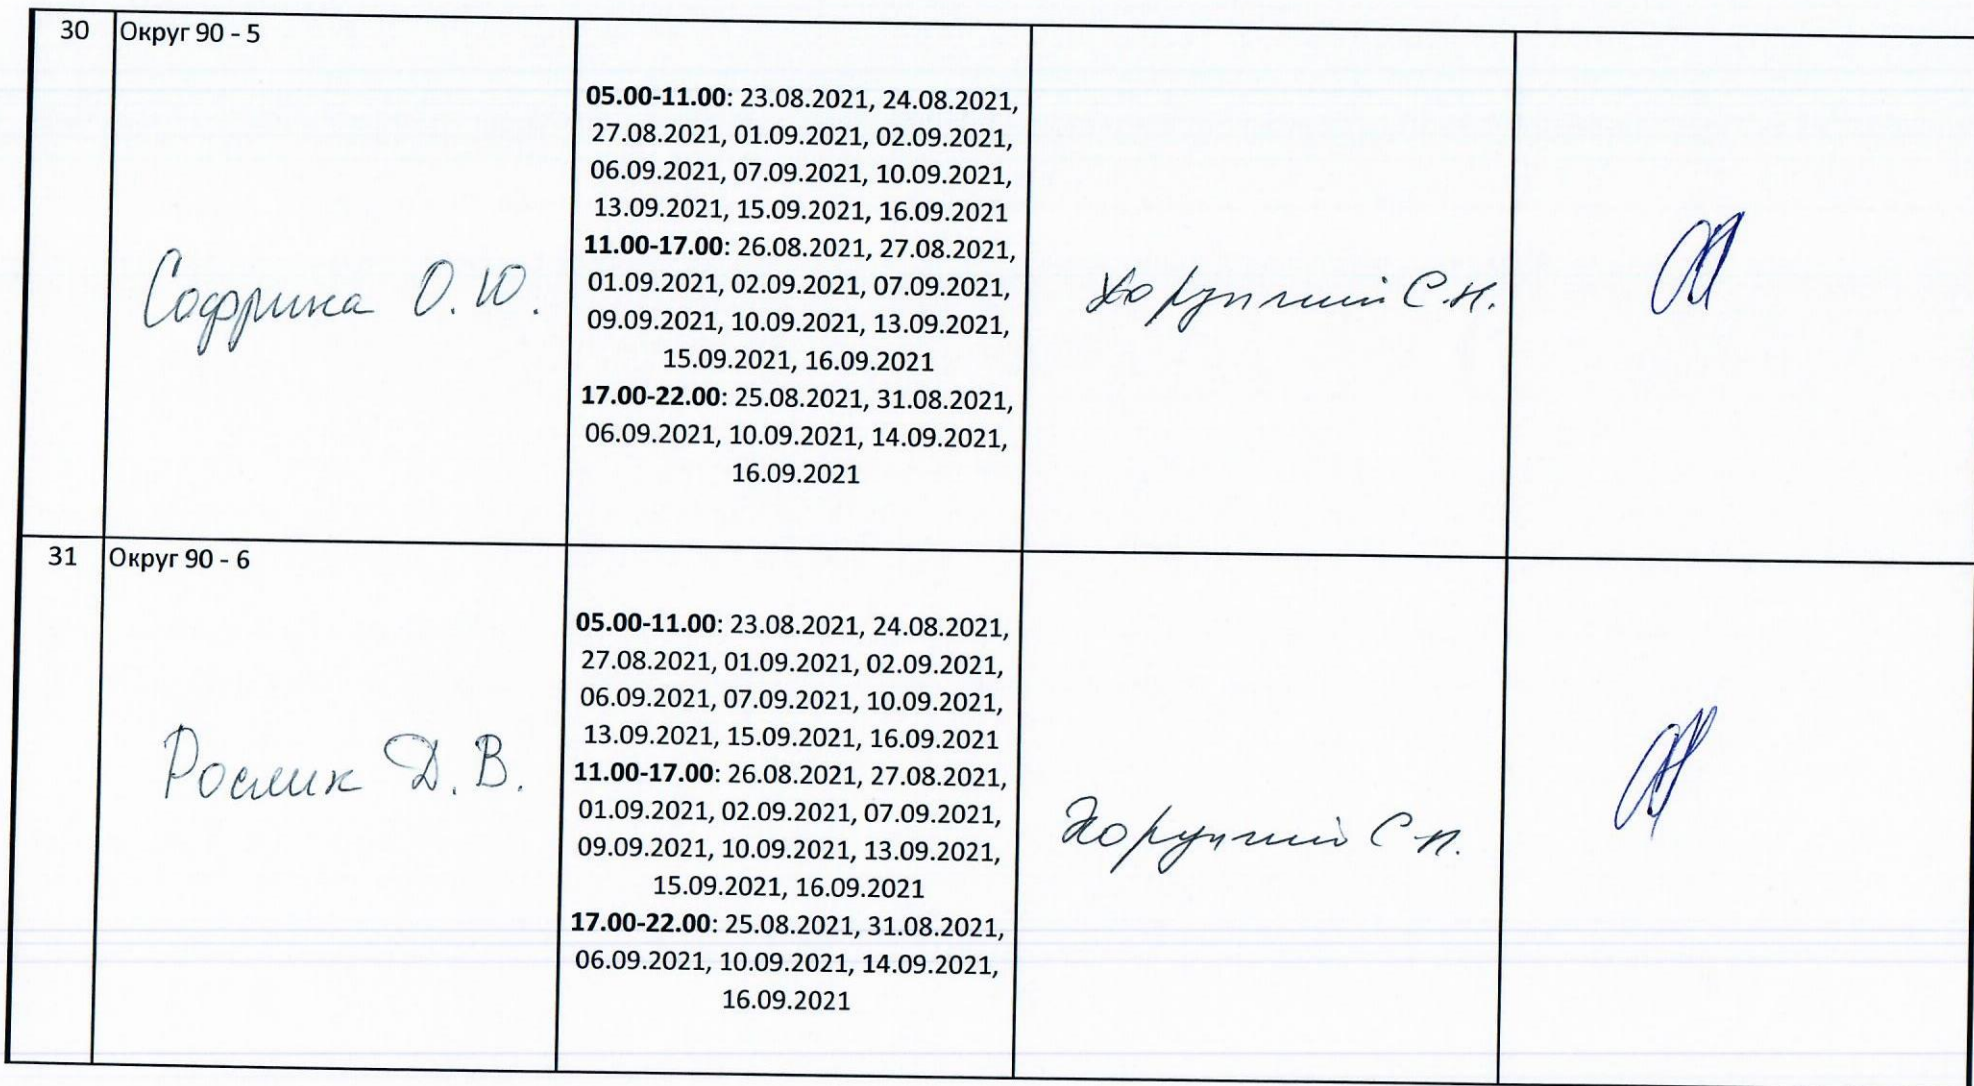 30 Округ 90 - 5
05.00-11.00: 23.08.2021, 24.08.2021,
27.08.2021, 01.09.2021, 02.09.2021,
06.09.2021, 07.09.2021, 10.09.2021,
13.09.2021, 15.09.2021, 16.09.2021
11.00-17.00: 26.08.2021, 27.08.2021,
01.09.2021, 02.09.2021, 07.09.2021,
09.09.2021, 10.09.2021, 13.09.2021,
15.09.2021, 16.09.2021
17.00-22.00: 25.08.2021, 31.08.2021,
06.09.2021, 10.09.2021, 14.09.2021,
16.09.2021
Софрина О.Ю.
С.Н.
31 Округ 90 - 6
05.00-11.00: 23.08.2021, 24.08.2021,
27.08.2021, 01.09.2021, 02.09.2021,
06.09.2021, 07.09.2021, 10.09.2021,
13.09.2021, 15.09.2021, 16.09.2021
11.00-17.00: 26.08.2021, 27.08.2021,
01.09.2021, 02.09.2021, 07.09.2021,
09.09.2021, 10.09.2021, 13.09.2021,
15.09.2021, 16.09.2021
17.00-22.00: 25.08.2021, 31.08.2021,
06.09.2021, 10.09.2021, 14.09.2021,
16.09.2021
Рослик Д.В.